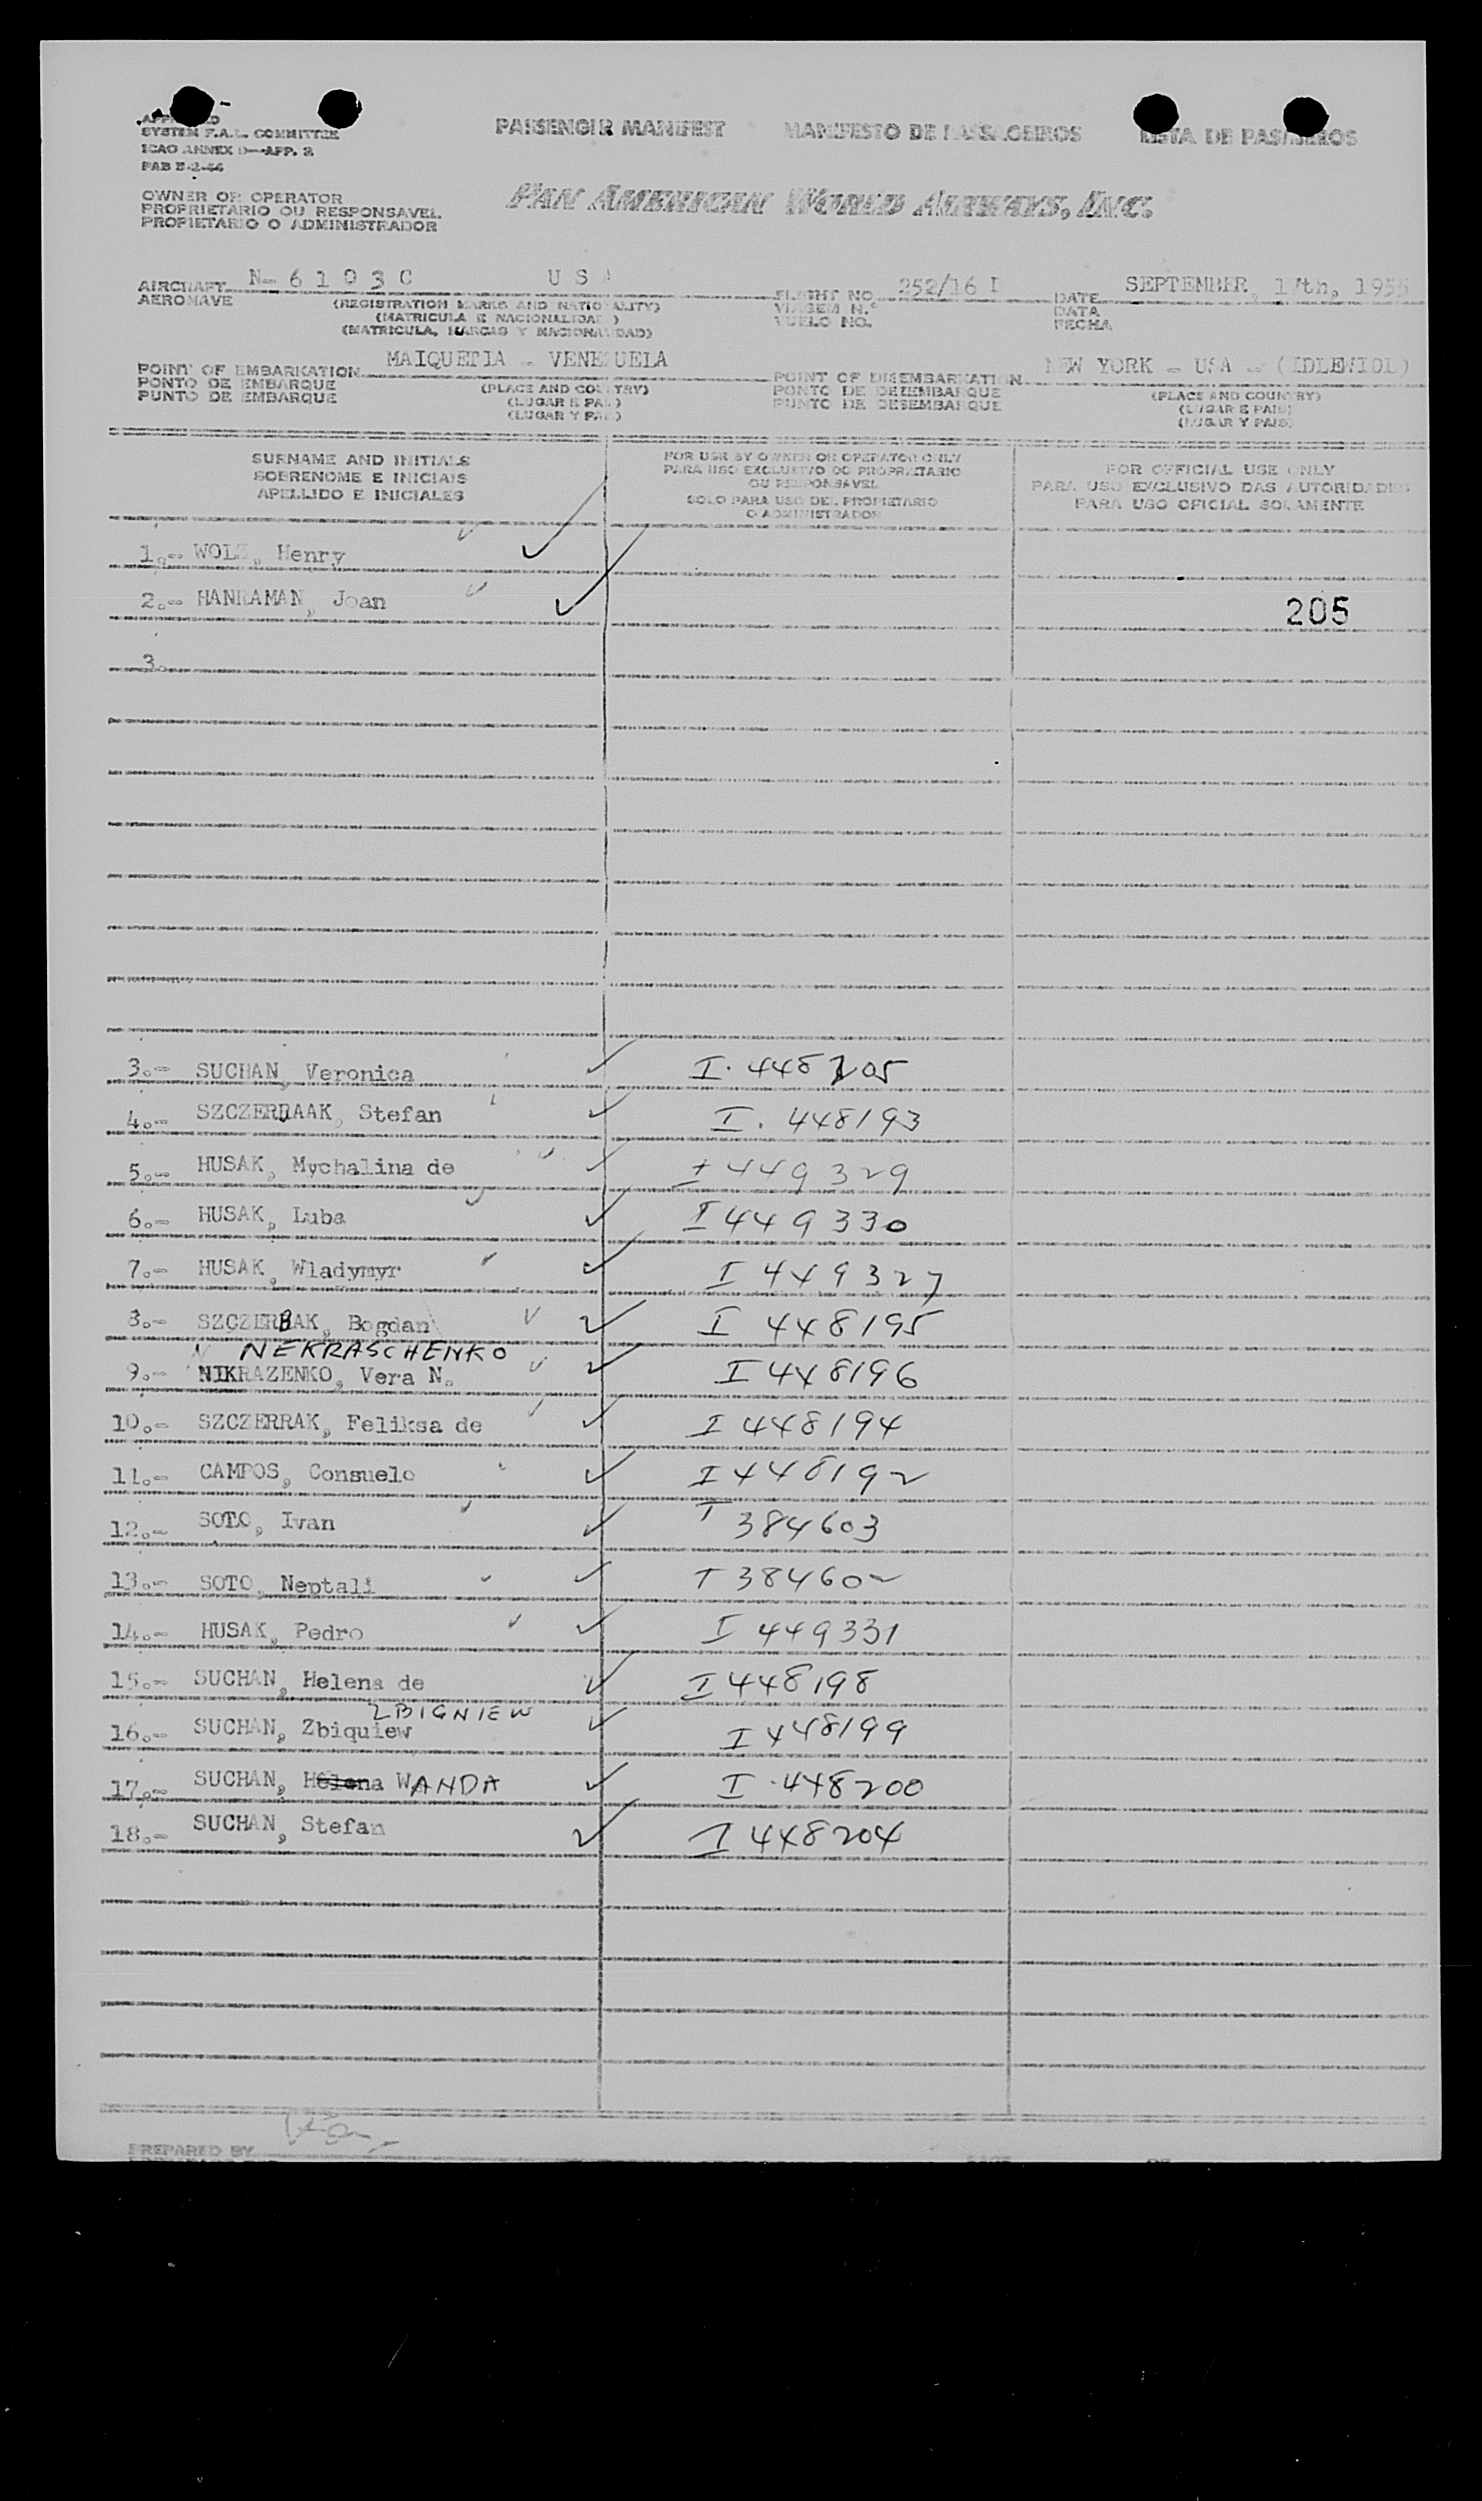 SYSTEM F.A.L. COMMITTEE
ICAO ANNEX 9—APP. 2
PASSENGER MANIFEST MANIFESTO DE PASSAGEIROS LISTA DE PASAJEROS
OWNER OR OPERATOR
PROPRIETARIO OU RESPONSAVEL
PROPIETARIO O ADMINISTRADOR
PAN AMERICAN WORLD AIRWAYS, INC.
AIRCRAFT N-6103C USA FLIGHT NO. 252/16 I DATE SEPTEMBER, 17th, 1955
AERONAVE (REGISTRATION MARKS AND NATIONALITY) VIAGEM N.º DATA
(MATRICULA E NACIONALIDAD) VUELO NO. FECHA
(MATRICULA, MARCAS Y NACIONALIDAD)
POINT OF EMBARKATION MAIQUETIA - VENEZUELA POINT OF DISEMBARKATION NEW YORK - USA - (IDLEWIDL)
PONTO DE EMBARQUE (PLACE AND COUNTRY) PONTO DE DEZEMBARQUE (PLACE AND COUNTRY)
PUNTO DE EMBARQUE (LUGAR E PAIS) PUNTO DE DESEMBARQUE (LUGAR E PAIS)
(LUGAR Y PAIS) (LUGAR Y PAIS)
SURNAME AND INITIALS
SOBRENOME E INICIAIS
APELLIDO E INICIALES
FOR USE BY OWNER OR OPERATOR ONLY
PARA USO EXCLUSIVO DO PROPRIETARIO
OU RESPONSAVEL
SOLO PARA USO DEL PROPIETARIO
O ADMINISTRADOR
FOR OFFICIAL USE ONLY
PARA USO EXCLUSIVO DAS AUTORIDADES
PARA USO OFICIAL SOLAMENTE
1.- Henry
2.- Joan
205
3.
3.- SUCHAN, Veronica I. 448205
4.- Stefan I. 448193
5.- HUSAK, Mychalina de I 449329
6.- HUSAK, Luba I 449330
7.- HUSAK, Wladymyr I 449327
8.- SZCZERBAK, Bogdan I 448195
NEKRASCHENKO
9.- NIKRAZENKO, Vera N. I 448196
10.- SZCZERRAK, Feliksa de I 448194
11.- CAMPOS, Consuelo I 448192
12.- SOTO, Ivan I 384603
13.- SOTO, Neptali I 384602
14.- HUSAK, Pedro I 449331
15.- SUCHAN, Helena de I 448198
ZBIGNIEW
16.- SUCHAN, Zbiquiew I 448199
17.- SUCHAN, Helena WANDA I. 448200
18.- SUCHAN, Stefan I 448204
PREPARED BY